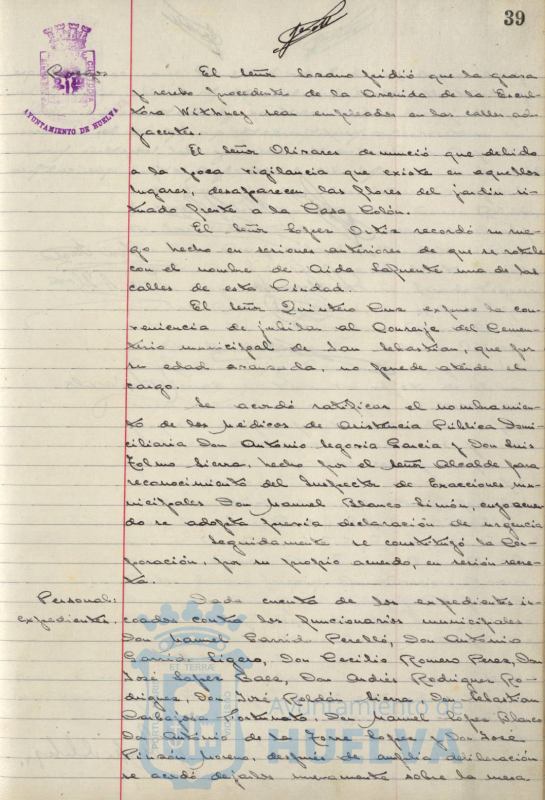 39
Ruegos
AYUNTAMIENTO DE HUELVA
El señor Lozano pidió que la grava
y recebo procedentes de la Avenida de la Escul-
tora Withney sean empleados en las calles ad-
yacentes.
El señor Olivares denunció que debido
a la poca vigilancia que existe en aquellos
lugares, desaparecen las flores del jardín si-
tuado frente a la Casa Colón.
El señor López Ortiz recordó su rue-
go hecho en sesiones anteriores de que se rotule
con el nombre de Aida Lafuente una de las
calles de esta Ciudad.
El señor Quintero Cruz expuso la con-
veniencia de jubilar al Conserje del Cemen-
terio municipal de San Sebastián, que por
su edad avanzada, no puede atender el
cargo.
Se acordó ratificar el nombramien-
to de los médicos de Asistencia Pública Domi-
ciliaria Don Antonio Segovia García y Don Luis
Tolmo Sierra, hecho por el señor Alcalde para
reconocimiento del Inspector de Exacciones mu-
nicipales Don Manuel Blanco Simón, cuyo acuer-
do se adopta previa declaración de urgencia
Seguidamente se constituyó la Cor-
poración, por su propio acuerdo, en sesión secre-
ta.
Personal:
expedientes.
Dada cuenta de los expedientes in-
coados contra los funcionarios municipales
Don Manuel Garrido Perelló, Don Antonio
Garrido Ligero, Don Cecilio Romero Pérez, Don
José López Baez, Don Andrés Rodríguez Ro-
dríguez, Don José Roldán Sierra, Don Sebastián
Carbajosa Fortunato Don Manuel López Blanco
Don Antonio de la Torre López y Don José
Pinzón Moreno, después de amplia deliberación
se acordó dejarlos nuevamente sobre la mesa
Ayuntamiento de
HUELVA